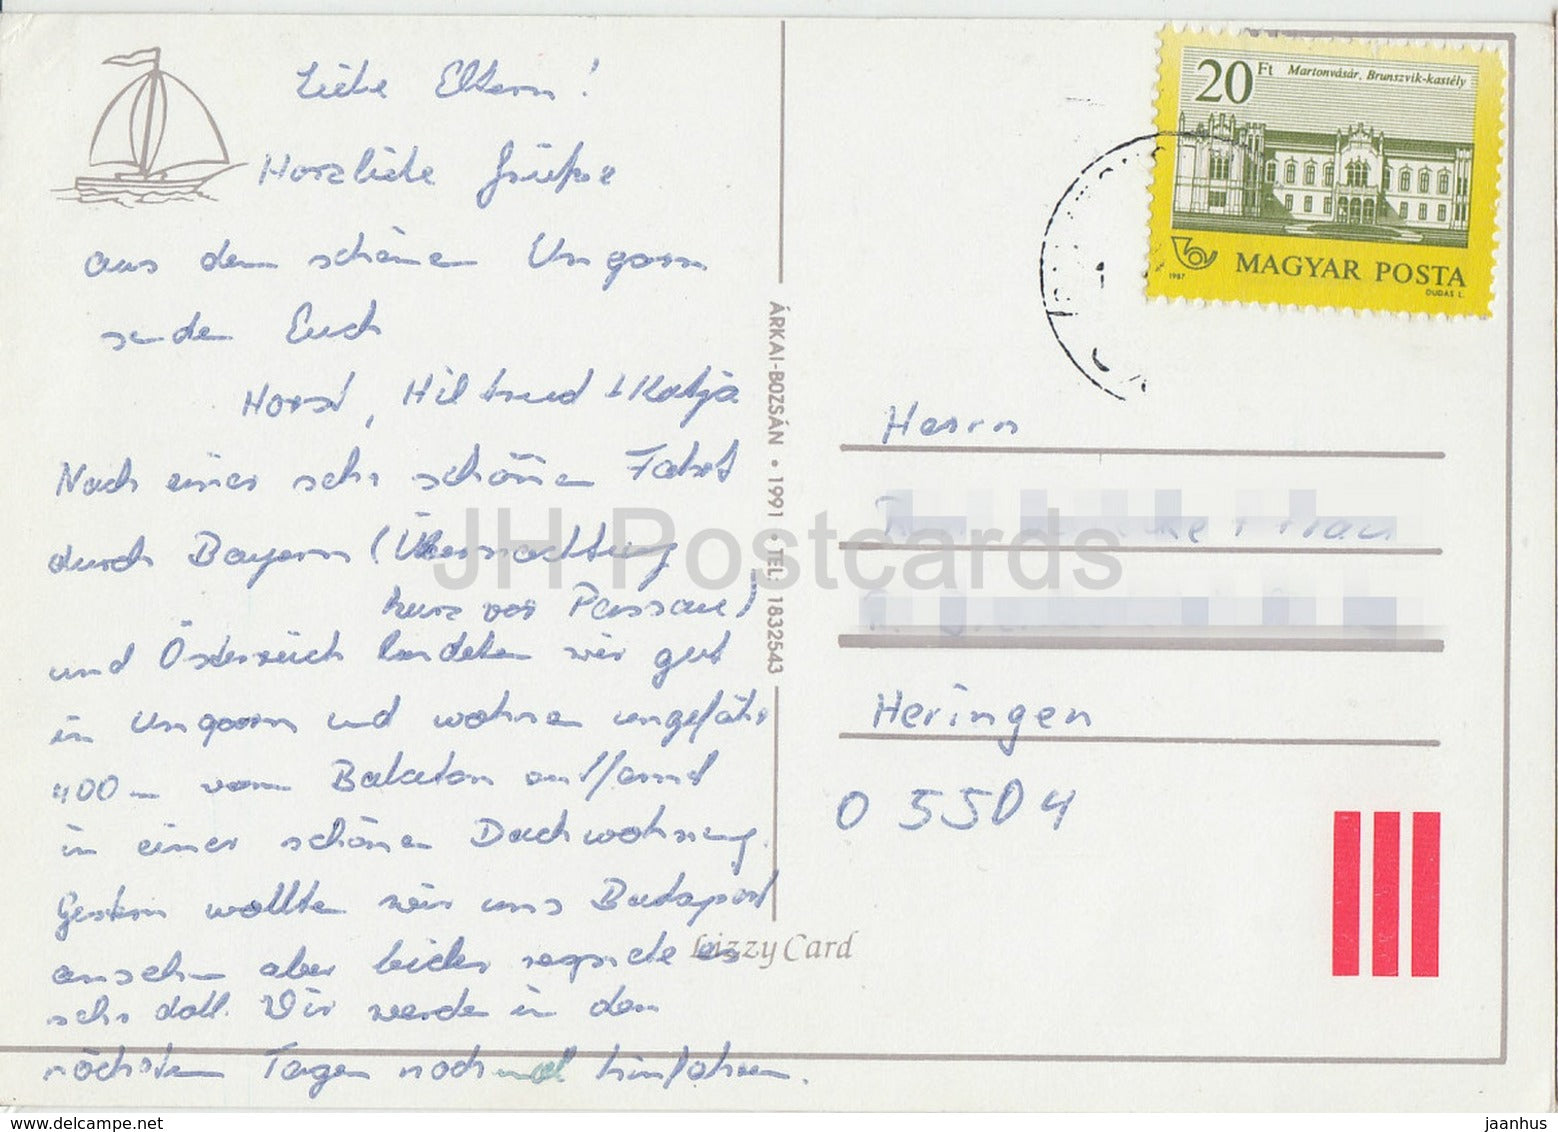 Liebe Eltern!
Herzliche Grüße
aus dem schönen Ungarn
senden Euch
Horst, Hiltrud + Katja
Nach einer sehr schönen Fahrt
durch Bayern (Übernachtung
kurz vor Passau)
und Österreich landeten wir gut
in Ungarn und wohnen ungefähr
400 m vom Balaton entfernt
in einer schönen Dachwohnung.
Gestern wollten wir uns Budapest
ansehen aber leider regnete es
sehr doll. Wir werden in den
nächsten Tagen nochmal hinfahren.
ÁRKAI-BOZSÁN • 1991 • TEL: 1832543
Lizzy Card
20 Ft Martonvásár, Brunszvik-kastély
MAGYAR POSTA
1987
DUDÁS L.
Herrn
Frau
Heringen
O 5504
JH Postcards
jaanhus